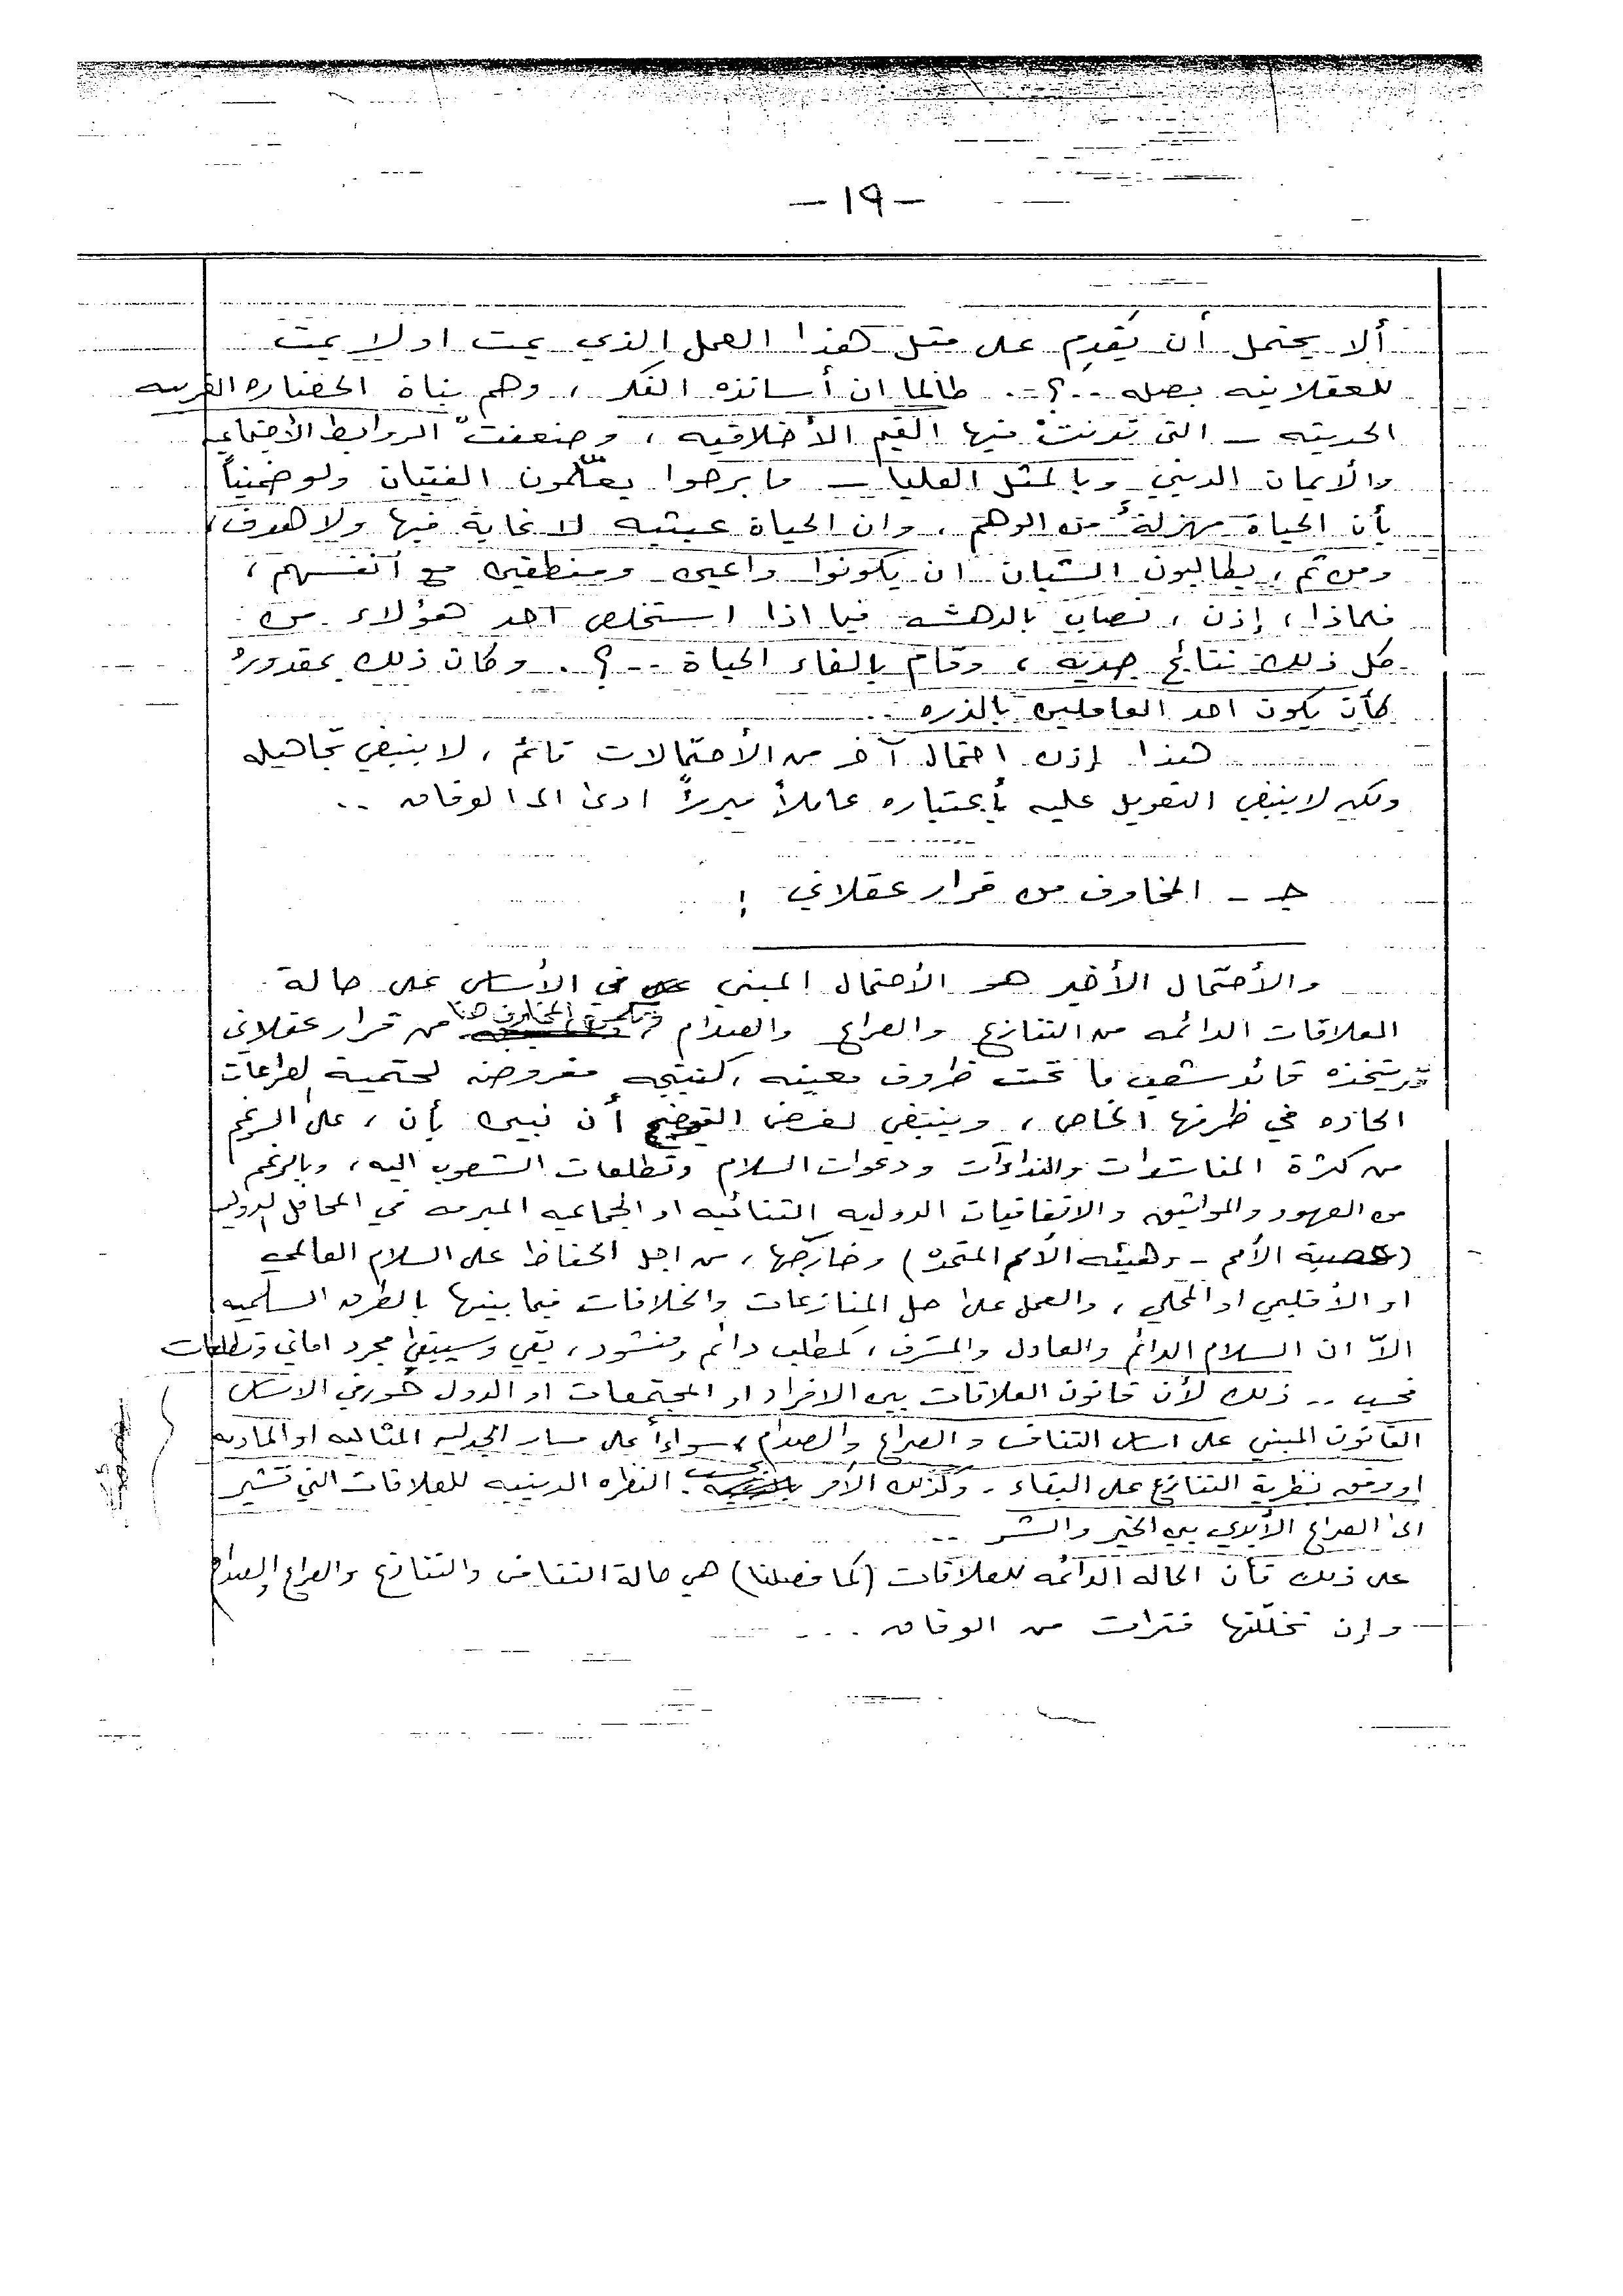 - ١٩ -
ألا يحتمل أن يُقدِم على مثل هذا العمل الذي يمت او لا يمت
للعقلانيه بصله ..؟.. طالما ان أساتذه الفكر ، وهم بناة الحضاره الغربيه
الحديثه – التي تدنت فيها القيم الأخلاقيه ، وضعفت الروابط الأجتماعيه
والأيمان الديني وبالمثل العليا – ما برحوا يعلّمون الفتيان ولو ضمنياً
بأن الحياة مهزلة من الوهم ، وان الحياة عبثيه لا غاية فيها ولا هدف ،
ومن ثم ، يطالبون الشبان ان يكونوا واعين ومنطقين مع أنفسهم ،
فلماذا ، إذن ، نصاب بالدهشه فيما اذا استخلص احد هؤلاء من
كل ذلك نتائج جديه ، وقام بالغاء الحياة ..؟. وكان ذلك بمقدوره
كأن يكون احد العاملين بالذره ..
هذا إذن احتمال آخر من الأحتمالات قائم ، لا ينبغي تجاهله
ولكن لا ينبغي التعويل عليه بأعتباره عاملاً مبرراً ادى الى الوفاق ..
جـ - المخاوف من قرار عقلاني :
والأحتمال الأخير هو الأحتمال المبني في الأساس على حالة
العلاقات الدائمه من التنازع والصراع والصدام ، وتكمن المخاوف هنا من قرار عقلاني
قد يتخذه قائد شعب ما تحت ظروف معينه ، كنتيجه مفروضه لحتمية الصراعات
الحاده في ظرفها الخاص ، وينبغي لغرض التوضيح أن نبين بأن ، على الرغم
من كثرة المناشدات والنداءات ودعوات السلام وتطلعات الشعوب اليه ، وبالرغم
من العهود والمواثيق والاتفاقيات الدوليه الثنائيه او الجماعيه المبرمه في المحافل الدوليه
(عصبة الأمم - وهيئه الأمم المتحدة) وخارجها ، من اجل الحفاظ على السلام العالمي
او الأقليمي او المحلي ، والعمل على حل المنازعات والخلافات فيما بينها بالطرق السلميه
الاّ ان السلام الدائم والعادل والمشرف ، كمطلب دائم ومنشود ، بقي وسيبقى مجرد اماني وتطلعات
فحسب .. ذلك لأن قانون العلاقات بين الافراد او المجتمعات او الدول هو في الاساس
القانون المبني على اساس التنافس والصراع والصدام ، سواءاً على مسار الجدليه المثاليه او الماديه
او وفق نظرية التنازع على البقاء - وكذلك الأمر بحسب النظره الدينيه للعلاقات التي تشير
الى الصراع الأبدي بين الخير والشر ..
على ذلك فأن الحاله الدائمه للعلاقات (كما فصلنا) هي حالة التنافس والتنازع والصراع والصدام
وإن تخللتها فترات من الوفاق ...